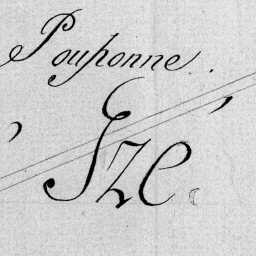 Pouponne.
Eze